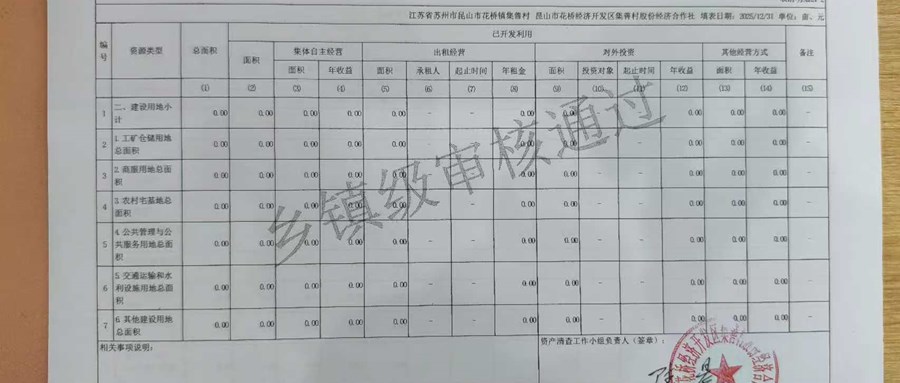 江苏省苏州市昆山市花桥镇集善村 昆山市花桥经济开发区集善村股份经济合作社 填表日期：2025/12/31 单位：亩、元
编号 资源类型 总面积 已开发利用 备注
面积 集体自主经营 出租经营 对外投资 其他经营方式
面积 年收益 面积 承租人 起止时间 年租金 面积 投资对象 起止时间 年收益 面积 年收益
(1) (2) (3) (4) (5) (6) (7) (8) (9) (10) (11) (12) (13) (14) (15)
1 二、建设用地小计 0.00 0.00 0.00 0.00 0.00 - - 0.00 0.00 - - 0.00 0.00 0.00
2 1.工矿仓储用地总面积 0.00 0.00 0.00 0.00 0.00 - - 0.00 0.00 - - 0.00 0.00 0.00
3 2.商服用地总面积 0.00 0.00 0.00 0.00 0.00 - - 0.00 0.00 - - 0.00 0.00 0.00
4 3.农村宅基地总面积 0.00 0.00 0.00 0.00 0.00 - - 0.00 0.00 - - 0.00 0.00 0.00
5 4.公共管理与公共服务用地总面积 0.00 0.00 0.00 0.00 0.00 - - 0.00 0.00 - - 0.00 0.00 0.00
6 5.交通运输和水利设施用地总面积 0.00 0.00 0.00 0.00 0.00 - - 0.00 0.00 - - 0.00 0.00 0.00
7 6.其他建设用地总面积 0.00 0.00 0.00 0.00 0.00 - - 0.00 0.00 - - 0.00 0.00 0.00
乡镇级审核通过
相关事项说明： 资产清查工作小组负责人（签章）：